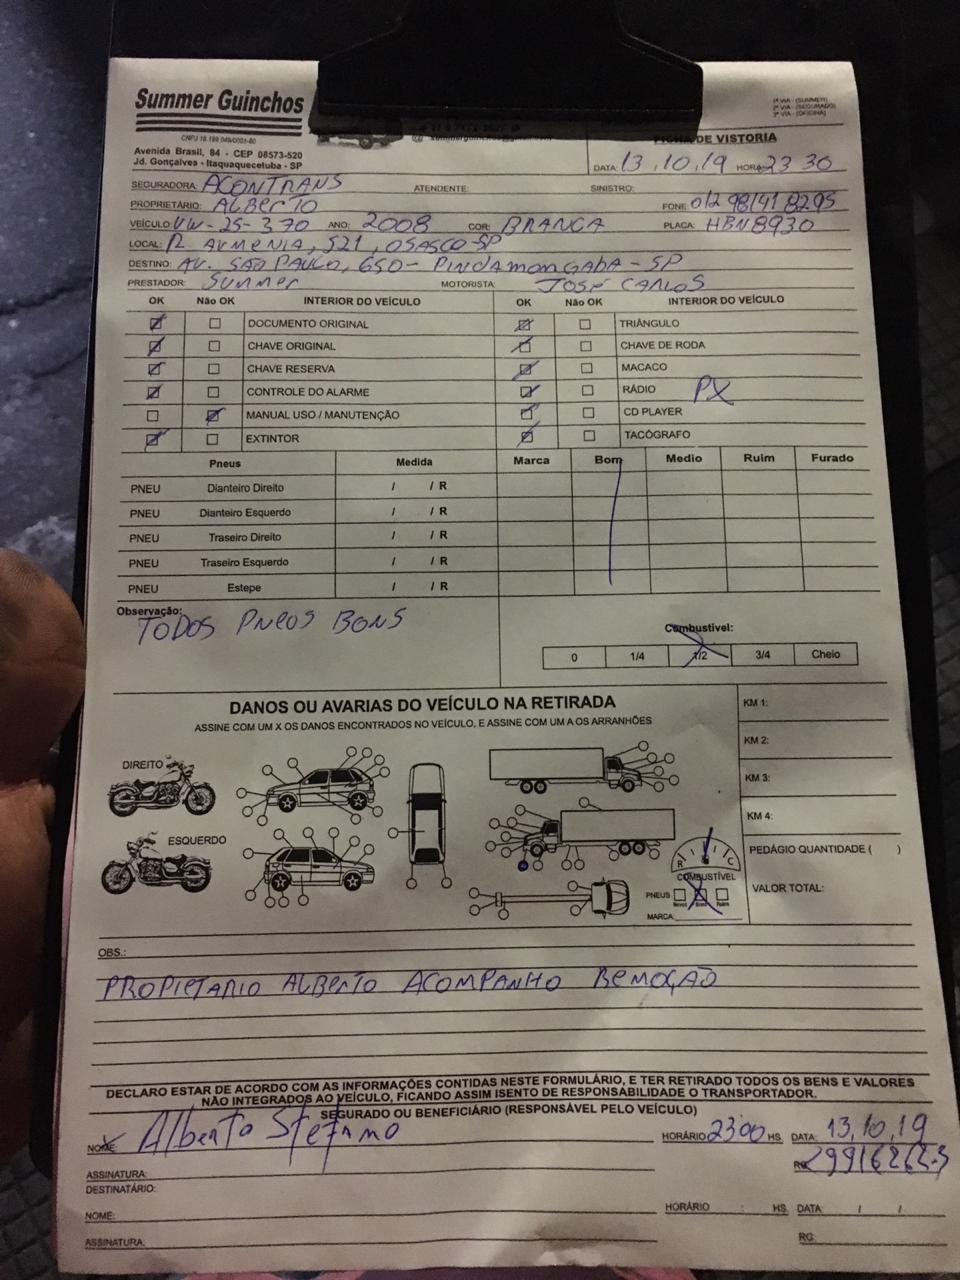 Summer Guinchos
1ª VIA - (SUMMER)
2ª VIA - (SEGURADO)
3ª VIA - (OFICINA)
FICHA DE VISTORIA
Avenida Brasil, 84 - CEP 08573-520
Jd. Gonçalves - Itaquaquecetuba - SP
DATA: 13,10,19 HORA: 23 30
SEGURADORA: ACONTRANS ATENDENTE: SINISTRO:
PROPRIETÁRIO: ALBERTO FONE: 012 98141 8295
VEÍCULO VW-25-370 ANO: 2008 COR: BRANCA PLACA: HBN8930
LOCAL: R. ARMENIA, 521, OSASCO-SP
DESTINO: AV. SAO PAULO, 650- PINDAMONGABA-SP
PRESTADOR: Summer MOTORISTA: JOSÉ CARLOS
OK Não OK INTERIOR DO VEÍCULO OK Não OK INTERIOR DO VEÍCULO
DOCUMENTO ORIGINAL TRIÂNGULO
CHAVE ORIGINAL CHAVE DE RODA
CHAVE RESERVA MACACO
CONTROLE DO ALARME RÁDIO PX
MANUAL USO / MANUTENÇÃO CD PLAYER
EXTINTOR TACÓGRAFO
Pneus Medida Marca Bom Medio Ruim Furado
PNEU Dianteiro Direito / / R
PNEU Dianteiro Esquerdo / / R
PNEU Traseiro Direito / / R
PNEU Traseiro Esquerdo / / R
PNEU Estepe / / R
Observação: TODOS PNEOS BONS
Combustível:
0 1/4 1/2 3/4 Cheio
DANOS OU AVARIAS DO VEÍCULO NA RETIRADA
ASSINE COM UM X OS DANOS ENCONTRADOS NO VEÍCULO, E ASSINE COM UM A OS ARRANHÕES
KM 1:
KM 2:
KM 3:
KM 4:
DIREITO
ESQUERDO
PEDÁGIO QUANTIDADE ( )
R C
COMBUSTÍVEL
VALOR TOTAL:
PNEUS
MARCA:
OBS.:
PROPIETARIO ALBERTO ACOMPANHO REMOÇÃO
DECLARO ESTAR DE ACORDO COM AS INFORMAÇÕES CONTIDAS NESTE FORMULÁRIO, E TER RETIRADO TODOS OS BENS E VALORES
NÃO INTEGRADOS AO VEÍCULO, FICANDO ASSIM ISENTO DE RESPONSABILIDADE O TRANSPORTADOR.
SEGURADO OU BENEFICIÁRIO (RESPONSÁVEL PELO VEÍCULO)
NOME: Alberto HORÁRIO 23:00 HS. DATA: 13,10,19
ASSINATURA: RG:
DESTINATÁRIO:
NOME: HORÁRIO : HS. DATA / /
ASSINATURA: RG: